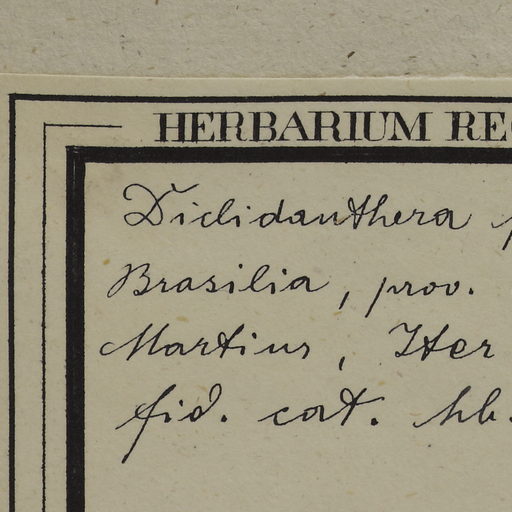 HERBARIUM REG
Diclidanthera p
Brasilia, prov.
Martius, Iter
fid. cat. hb.